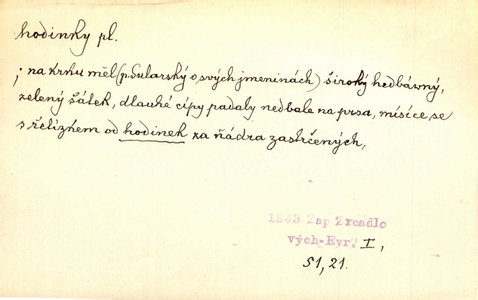 hodinky pl.
; na krku měl (p. Sularský o svých jmeninách) široký hedbávný,
zelený šátek, dlouhé cípy padaly nedbale na prsa, mísíce se
s řetízkem od hodinek za ňádra zastrčených,
1843 Zap Zrcadlo
vých-Evr. I,
51,21.